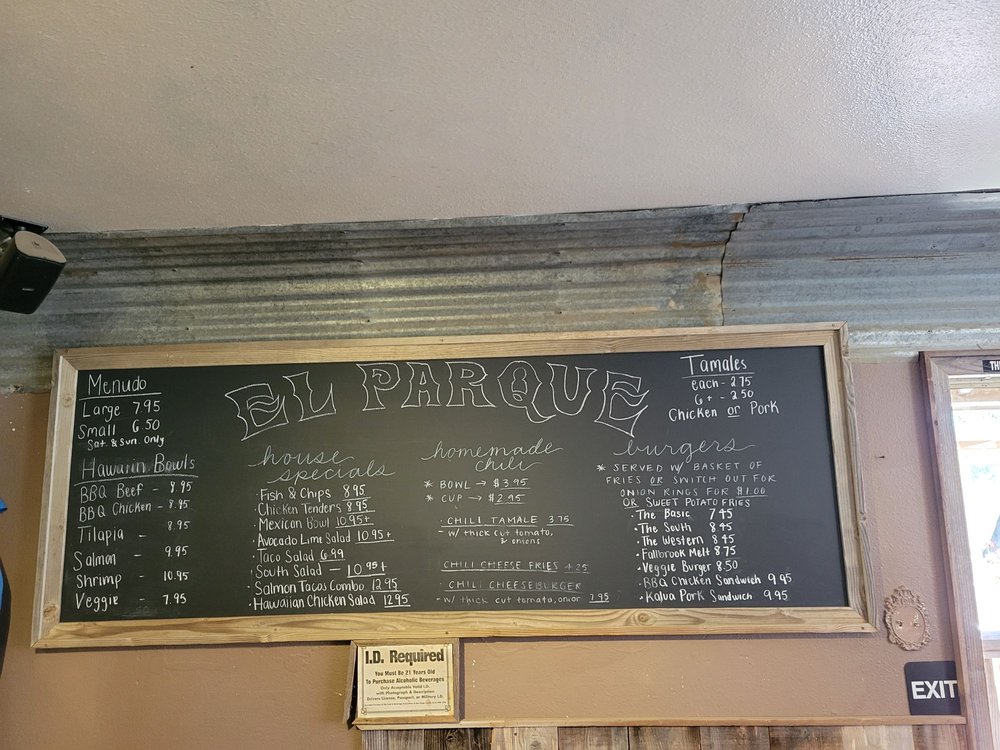 EL PARQUE
Menudo
Large 7.95
Small 6.50
Sat. & Sun. Only
Hawaiin Bowls
BBQ Beef - 8.95
BBQ Chicken - 8.95
Tilapia - 8.95
Salmon - 9.95
Shrimp - 10.95
Veggie - 7.95
house
specials
· Fish & Chips 8.95
· Chicken Tenders 8.95
· Mexican Bowl 10.95+
· Avocado Lime Salad 10.95+
· Taco Salad 6.99
· South Salad - 10.95+
· Salmon Tacos Combo 12.95
· Hawaiian Chicken Salad 12.95
homemade
chili
* BOWL → $3.95
* CUP → $2.95
· CHILI TAMALE 3.75
- w/ thick cut tomato,
& onions
CHILI CHEESE FRIES 4.25
· CHILI CHEESEBURGER
- w/ thick cut tomato, onion 7.95
Tamales
each - 2.75
6+ - 2.50
Chicken or Pork
burgers
* SERVED W/ BASKET OF
FRIES OR SWITCH OUT FOR
ONION RINGS FOR $1.00
OR SWEET POTATO FRIES
· The Basic 7.45
· The South 8.45
· The Western 8.45
· Fallbrook Melt 8.75
· Veggie Burger 8.50
· BBQ Chicken Sandwich 9.95
· Kalua Pork Sandwich 9.95
I.D. Required
You Must Be 21 Years Old
To Purchase Alcoholic Beverages
Only Acceptable Valid I.D.
with Photograph & Description
Drivers License, Passport, or Military I.D.
EXIT